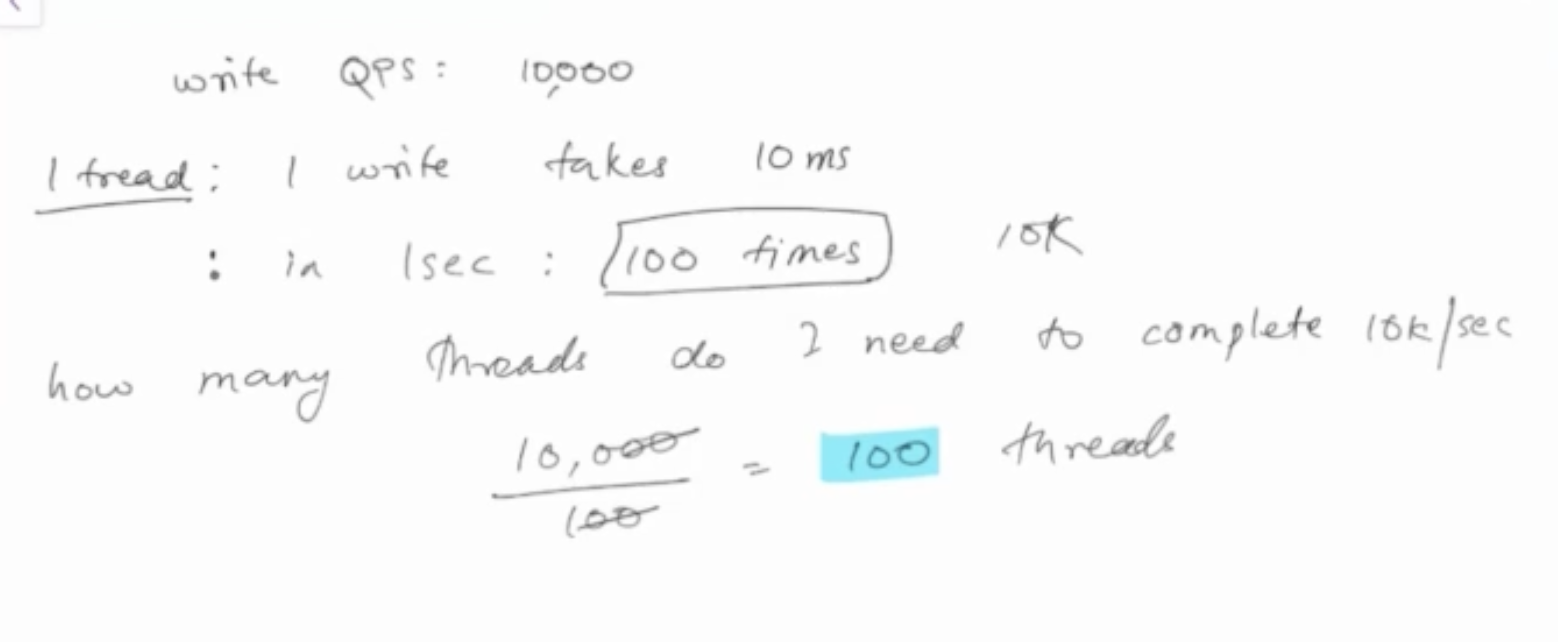 write QPS: 10,000
1 tread: 1 write takes 10 ms
: in 1sec : 100 times 10K
how many threads do I need to complete 10k/sec
10,000
100
= 100 threads